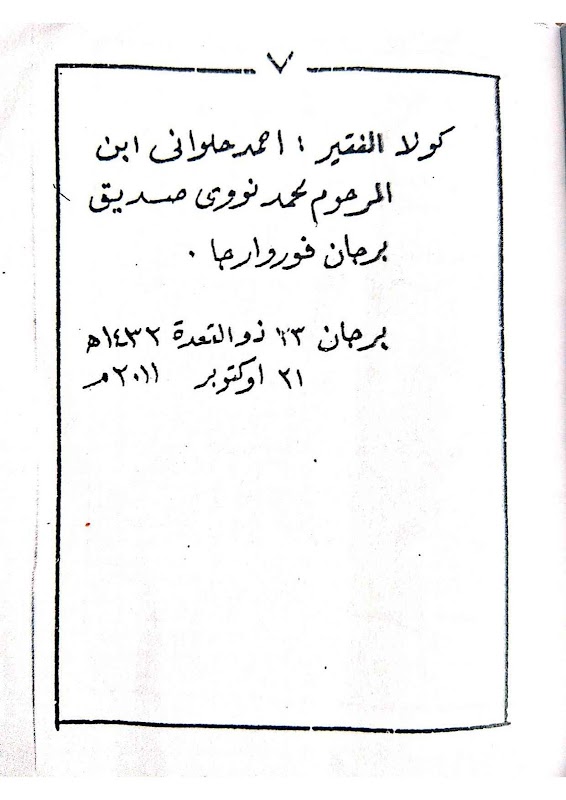 ٧
كولا الفقير : احمد حلوانى ابن
المرحوم محمد نووى صديق
برجان فوروارجا .
برجان ٢٣ ذوالقعدة ١٤٣٢ھ
٢١ اوكتوبر ٢٠١١م